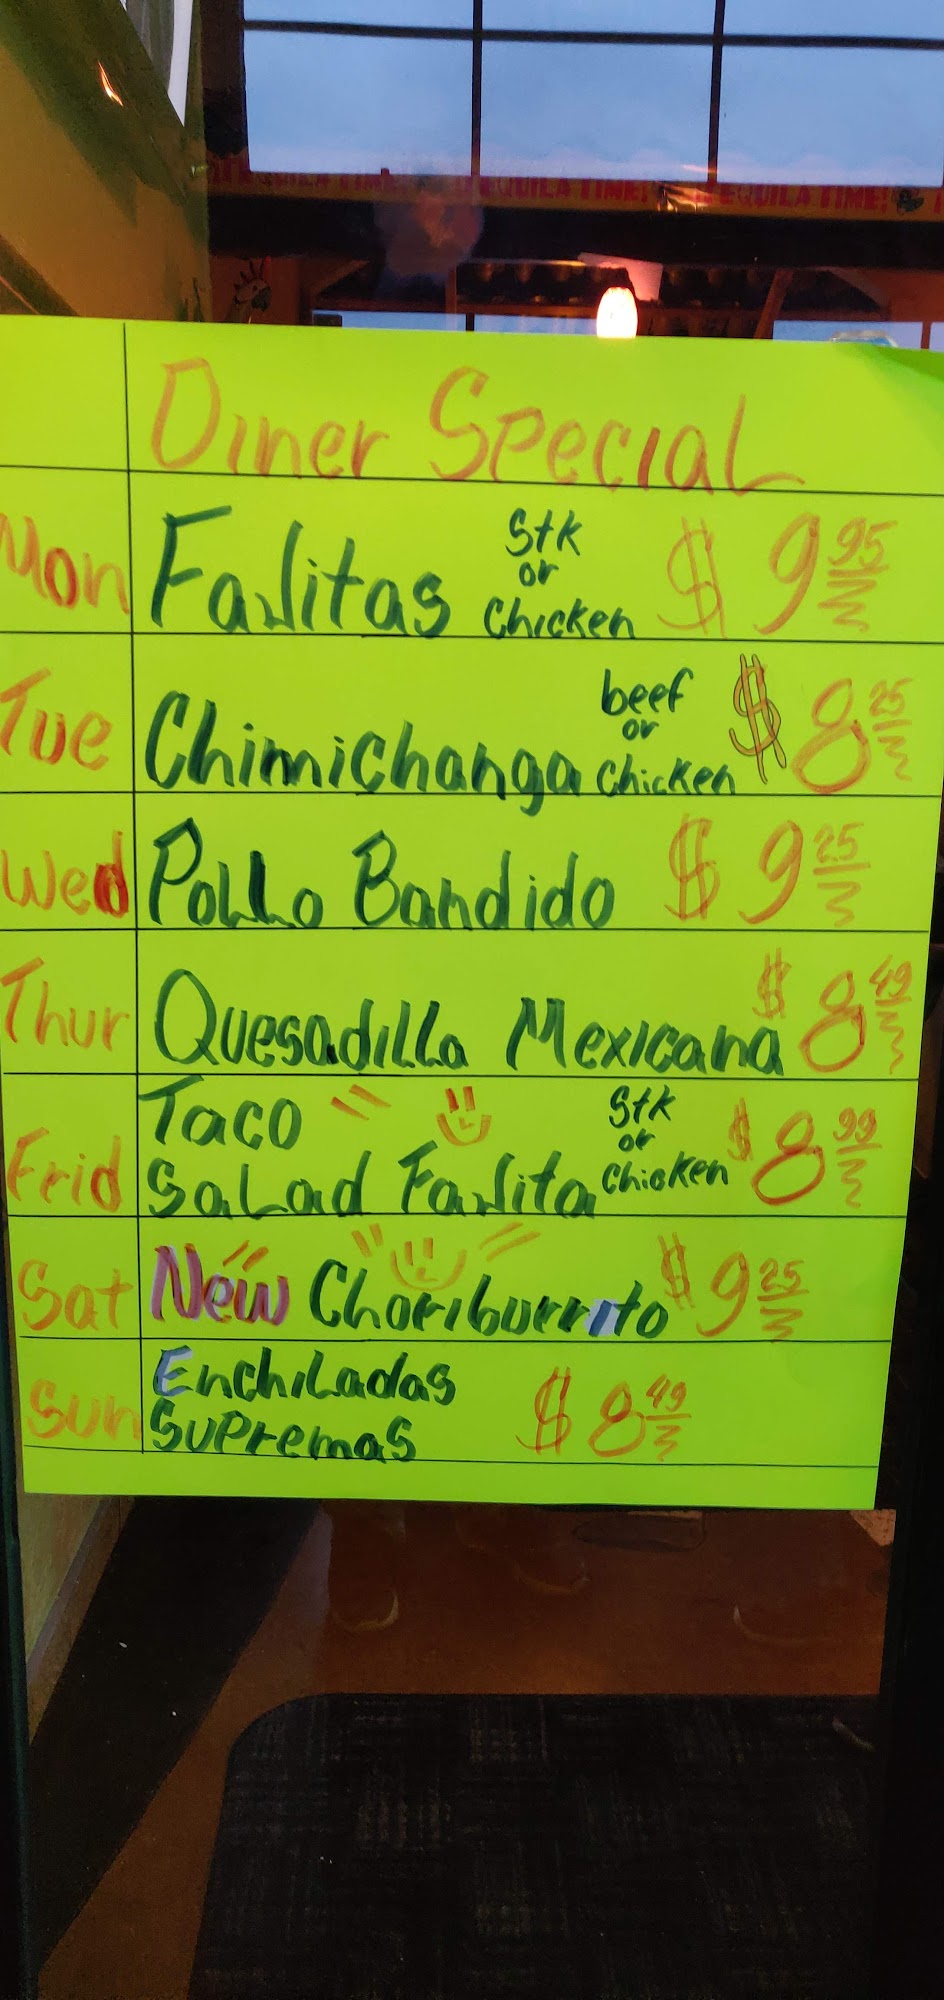 TEQUILA TIME! TEQUILA TIME!
Diner Special
Mon Fajitas Stk or Chicken $9.95
Tue Chimichanga beef or Chicken $8.25
Wed Pollo Bandido $9.25
Thur Quesadilla Mexicana $8.49
Frid Taco Salad Fajita Stk or Chicken $8.99
Sat New Choriburrito $9.25
Sun Enchiladas Supremas $8.49